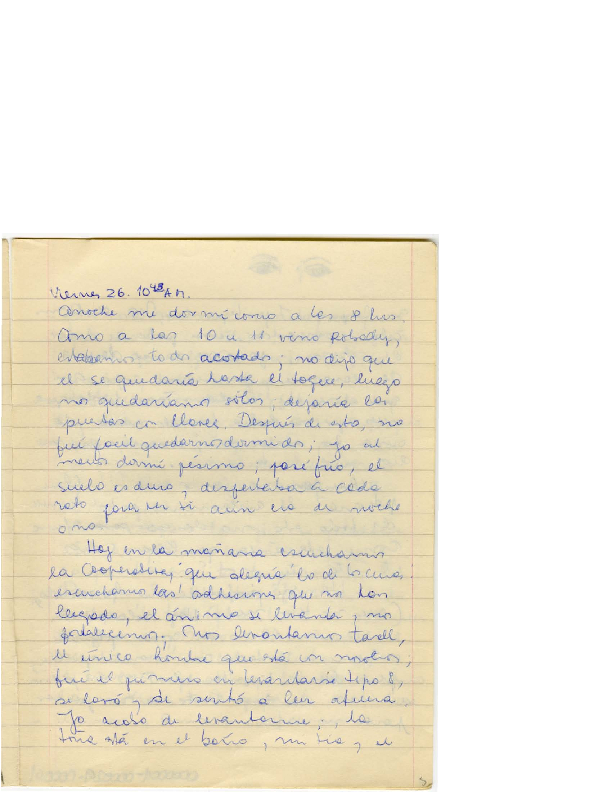 Viernes 26. 10 45 A.M.
Anoche me dormí como a las 8 hrs
Como a las 10 u 11 vino
estabamos todos acostados; nos dijo que
el se quedaría hasta el toque, luego
nos quedaríamos solos, dejaría las
puertas con llaves. Después de esto, no
fué facil quedarnos dormidos; yo al
menos dormí pésimo; pasé frío, el
suelo es duro, despertaba a cada
rato para ver si aún era de noche
o no.
Hoy en la mañana escuchamos
la Cooperativa, que alegría lo de los curas
escuchamos las adhesiones que nos han
llegado, el ánimo se levanta, nos
fortalecemos. Nos levantamos tarde,
el único hombre que está con nosotros,
fué el primero en levantarse tipo 8,
se lavó y se sentó a leer afuera
Yo acabo de levantarme; la
está en el baño, mi tía y el